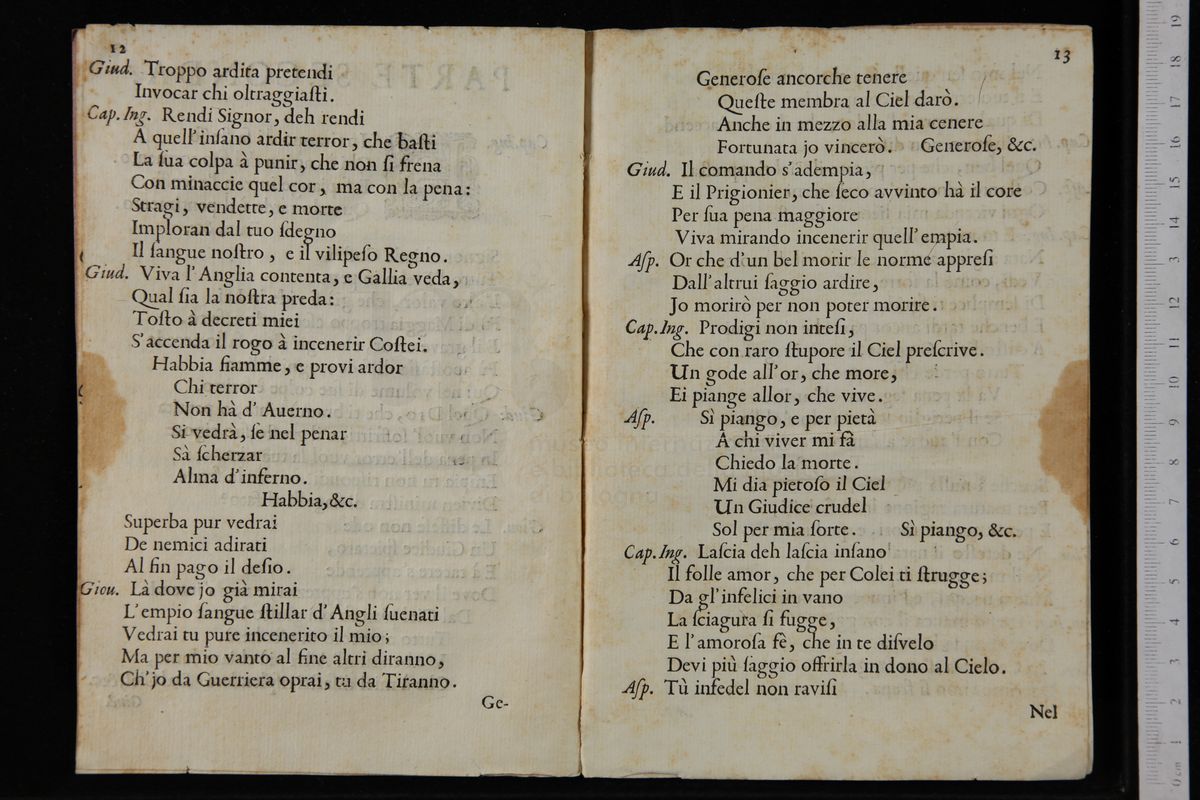 12
Giud. Troppo ardita pretendi
Invocar chi oltraggiaſti.
Cap. Ing. Rendi Signor, deh rendi
A quell' inſano ardir terror, che baſti
La ſua colpa à punir, che non ſi frena
Con minaccie quel cor, ma con la pena:
Stragi, vendette, e morte
Imploran dal tuo ſdegno
Il ſangue noſtro, e il vilipeſo Regno.
Giud. Viva l' Anglia contenta, e Gallia veda,
Qual ſia la noſtra preda:
Toſto à decreti miei
S' accenda il rogo à incenerir Coſtei.
Habbia fiamme, e provi ardor
Chi terror
Non hà d' Auerno.
Si vedrà, ſe nel penar
Sà ſcherzar
Alma d' inferno.
Habbia, &c.
Superba pur vedrai
De nemici adirati
Al fin pago il deſio.
Giou. Là dove jo già mirai
L' empio ſangue ſtillar d' Angli ſuenati
Vedrai tu pure incenerito il mio;
Ma per mio vanto al fine altri diranno,
Ch' jo da Guerriera oprai, tu da Tiranno.
Ge-
13
Generoſe ancorche tenere
Queſte membra al Ciel darò.
Anche in mezzo alla mia cenere
Fortunata jo vincerò. Generoſe, &c.
Giud. Il comando s' adempia,
E il Prigionier, che ſeco avvinto hà il core
Per ſua pena maggiore
Viva mirando incenerir quell' empia.
Aſp. Or che d' un bel morir le norme appreſi
Dall' altrui ſaggio ardire,
Jo morirò per non poter morire.
Cap. Ing. Prodigi non inteſi,
Che con raro ſtupore il Ciel preſcrive.
Un gode all' or, che more,
Ei piange allor, che vive.
Aſp. Sì piango, e per pietà
A chi viver mi fà
Chiedo la morte.
Mi dia pietoſo il Ciel
Un Giudice crudel
Sol per mia ſorte. Sì piango, &c.
Cap. Ing. Laſcia deh laſcia inſano
Il folle amor, che per Colei ti ſtrugge;
Da gl' infelici in vano
La ſciagura ſi fugge,
E l' amoroſa fê, che in te diſvelo
Devi più ſaggio offrirla in dono al Cielo.
Aſp. Tù infedel non raviſi
Nel